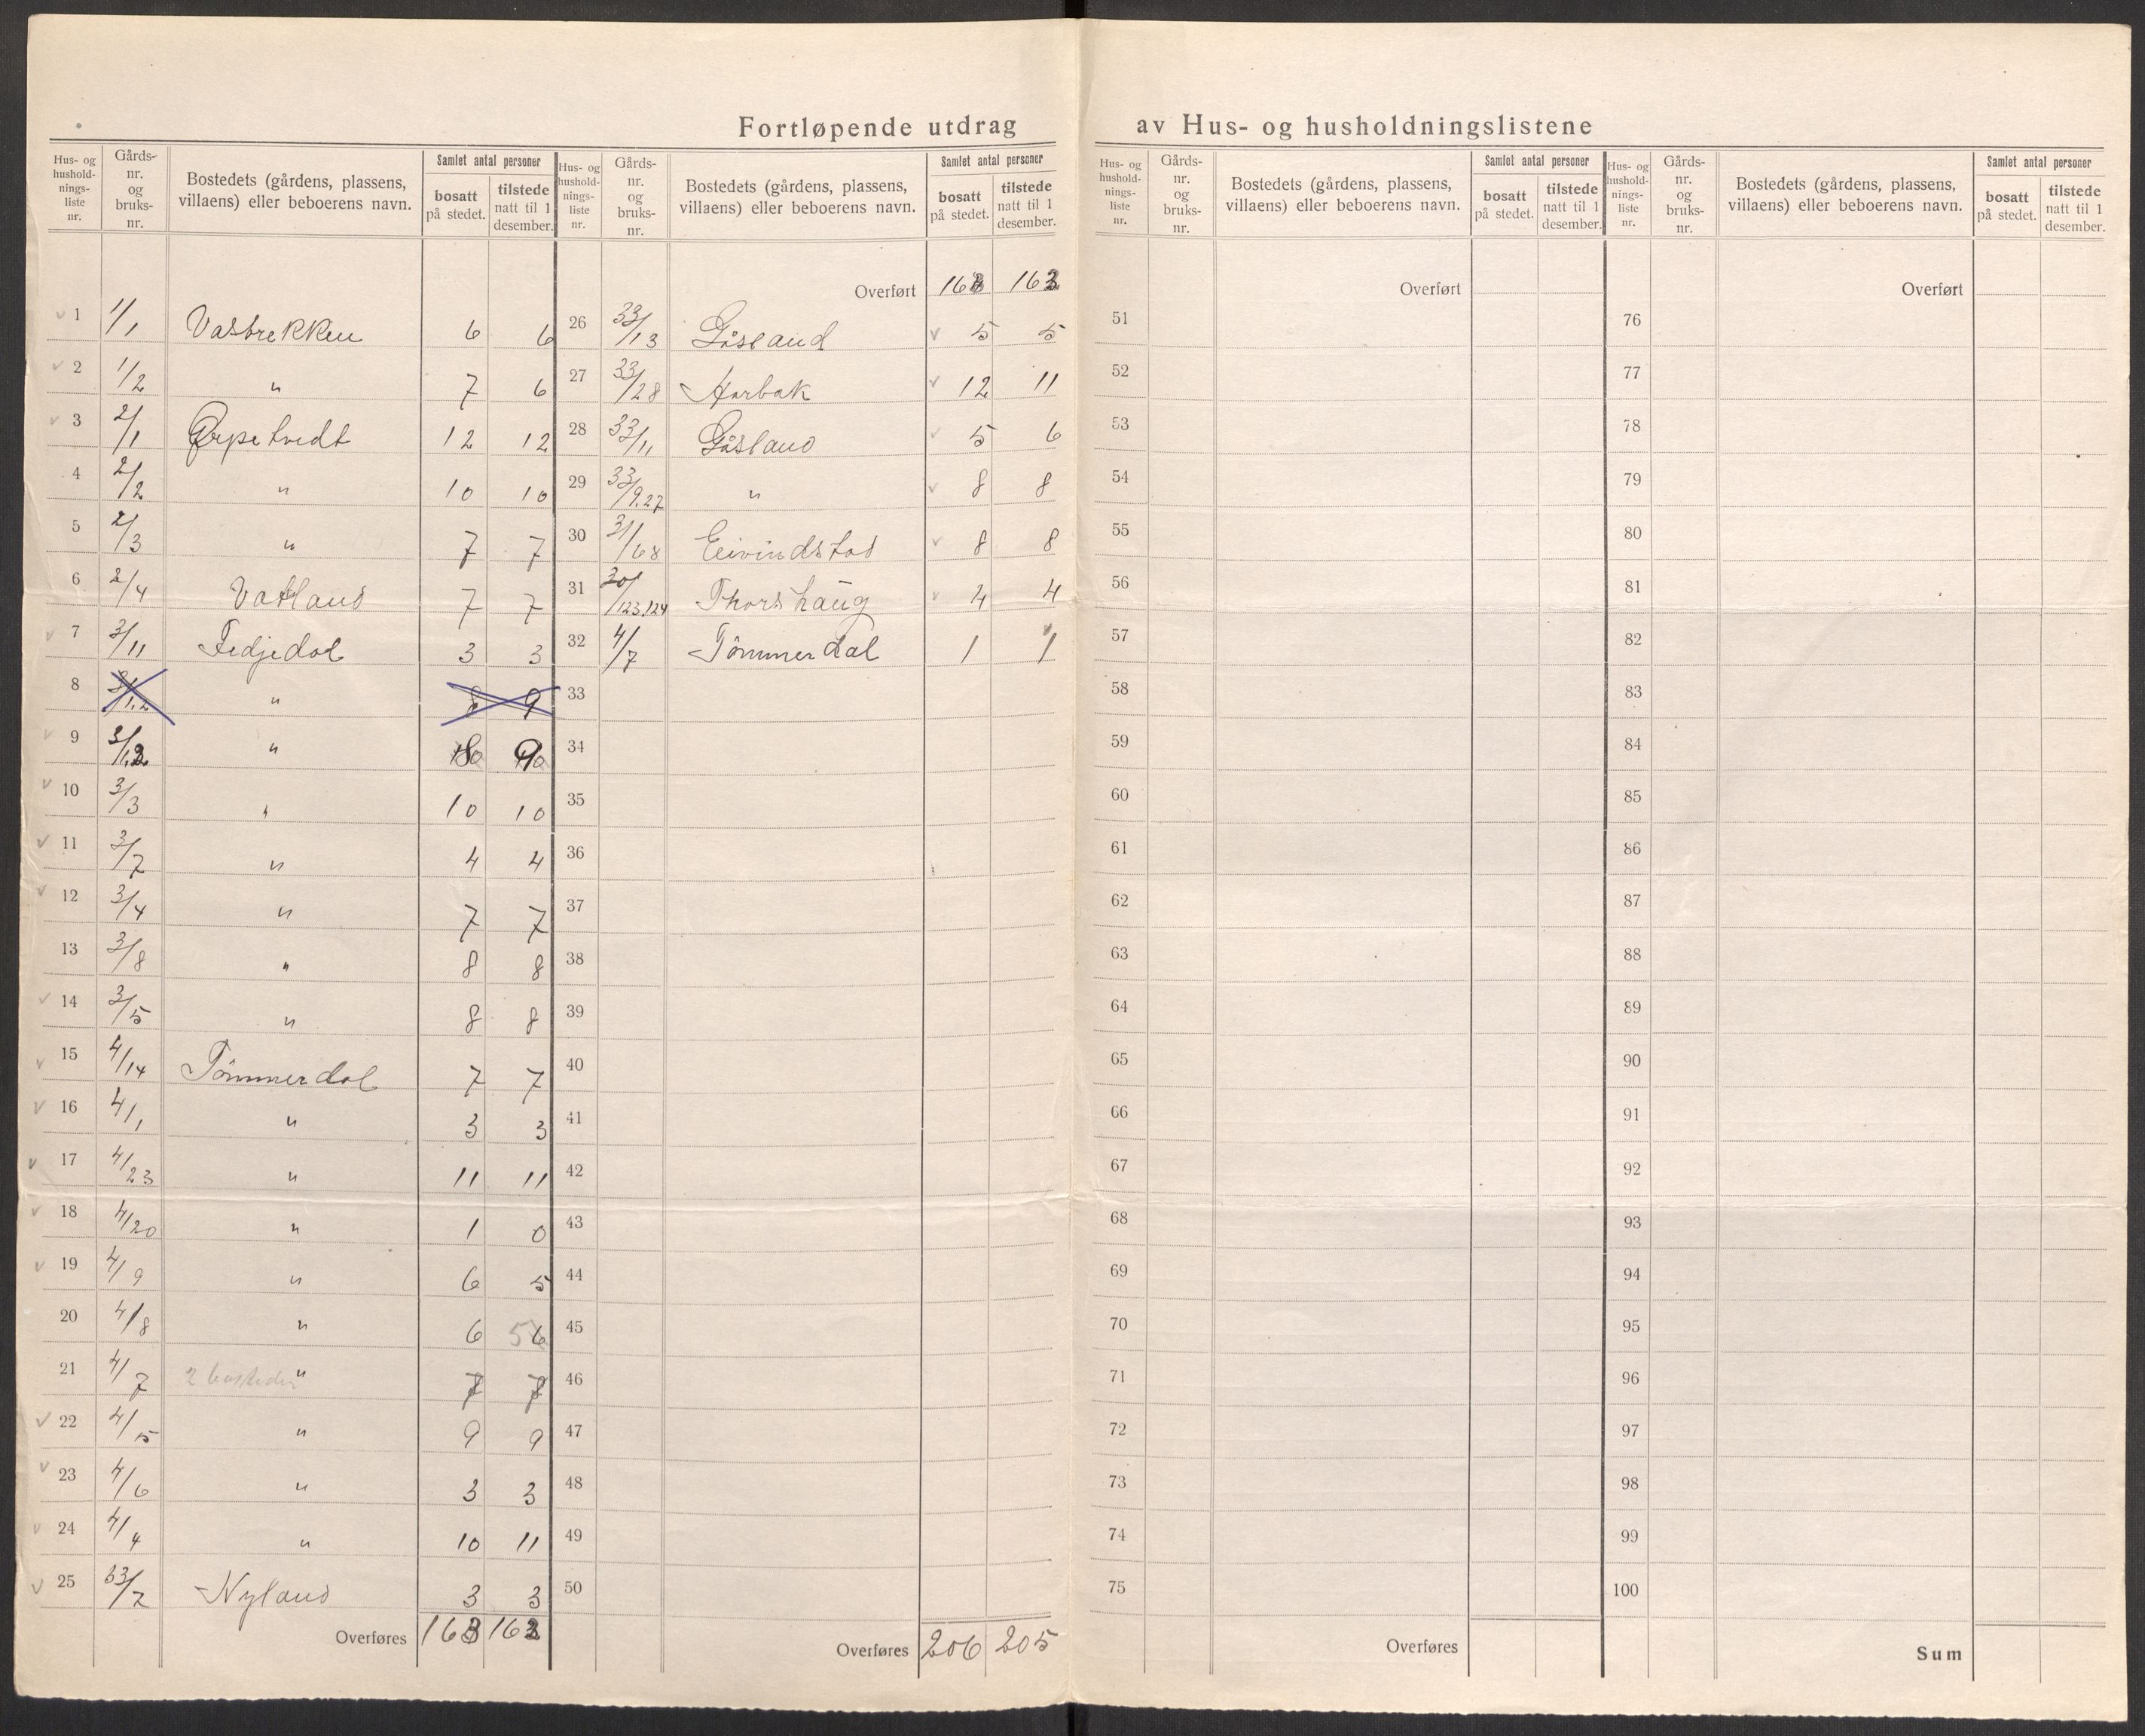 Fortløpende utdrag av Hus- og husholdningslistene
Hus- og hushold-nings-liste nr. | Gårds-nr. og bruks-nr. | Bostedets (gårdens, plassens, villaens) eller beboerens navn. | Samlet antal personer | bosatt på stedet. | tilstede natt til 1 desember.
1 1/1 Vasbrekken 6 6
2 1/2 " 7 6
3 2/1 Ørpetvedt 12 12
4 2/2 " 10 10
5 2/3 " 7 7
6 2/4 Vatland 7 7
7 3/11 Fedjedal 3 3
8 " 8 9
9 3/1,2 " 8 9
10 3/3 " 10 10
11 3/7 " 4 4
12 3/4 " 7 7
13 3/8 " 8 8
14 3/5 " 8 8
15 4/14 Tömmerdal 7 7
16 4/1 " 3 3
17 4/23 " 11 11
18 4/20 " 1 0
19 4/9 " 6 5
20 4/8 " 6 5 6
21 4/7 2 bosteder " 7 7
22 4/15 " 9 9
23 4/6 " 3 3
24 4/4 " 10 11
25 33/2 Nyland 3 3
Overføres 163 162
Hus- og hushold-nings-liste nr. | Gårds-nr. og bruks-nr. | Bostedets (gårdens, plassens, villaens) eller beboerens navn. | Samlet antal personer | bosatt på stedet. | tilstede natt til 1 desember.
Overført 163 162
26 33/13 Gåsland 5 5
27 33/28 Aarbak 12 11
28 33/11 Gåsland 5 6
29 33/9.27 " 8 8
30 31/68 Eivindstad 8 8
31 30/123.124 Thorshaug 4 4
32 4/7 Tömmerdal 1 1
33
34
35
36
37
38
39
40
41
42
43
44
45
46
47
48
49
50
Overføres 206 205
Hus- og hushold-nings-liste nr. | Gårds-nr. og bruks-nr. | Bostedets (gårdens, plassens, villaens) eller beboerens navn. | Samlet antal personer | bosatt på stedet. | tilstede natt til 1 desember.
Overført
51
52
53
54
55
56
57
58
59
60
61
62
63
64
65
66
67
68
69
70
71
72
73
74
75
Overføres
Hus- og hushold-nings-liste nr. | Gårds-nr. og bruks-nr. | Bostedets (gårdens, plassens, villaens) eller beboerens navn. | Samlet antal personer | bosatt på stedet. | tilstede natt til 1 desember.
Overført
76
77
78
79
80
81
82
83
84
85
86
87
88
89
90
91
92
93
94
95
96
97
98
99
100
Sum